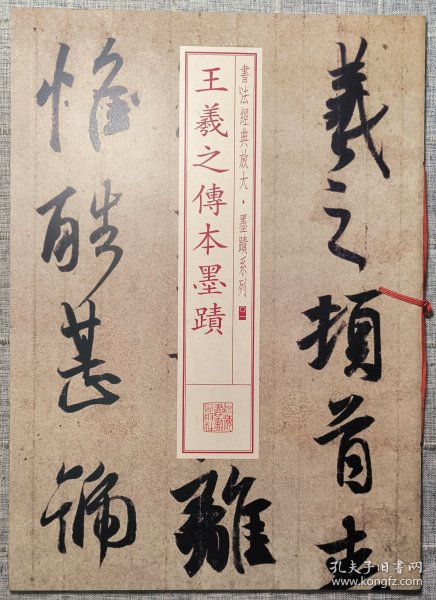 羲之頓首
書法經典放大·墨蹟系列
王羲之傳本墨蹟
離
惟酷甚號
孔夫子旧书网
www.kongfz.com